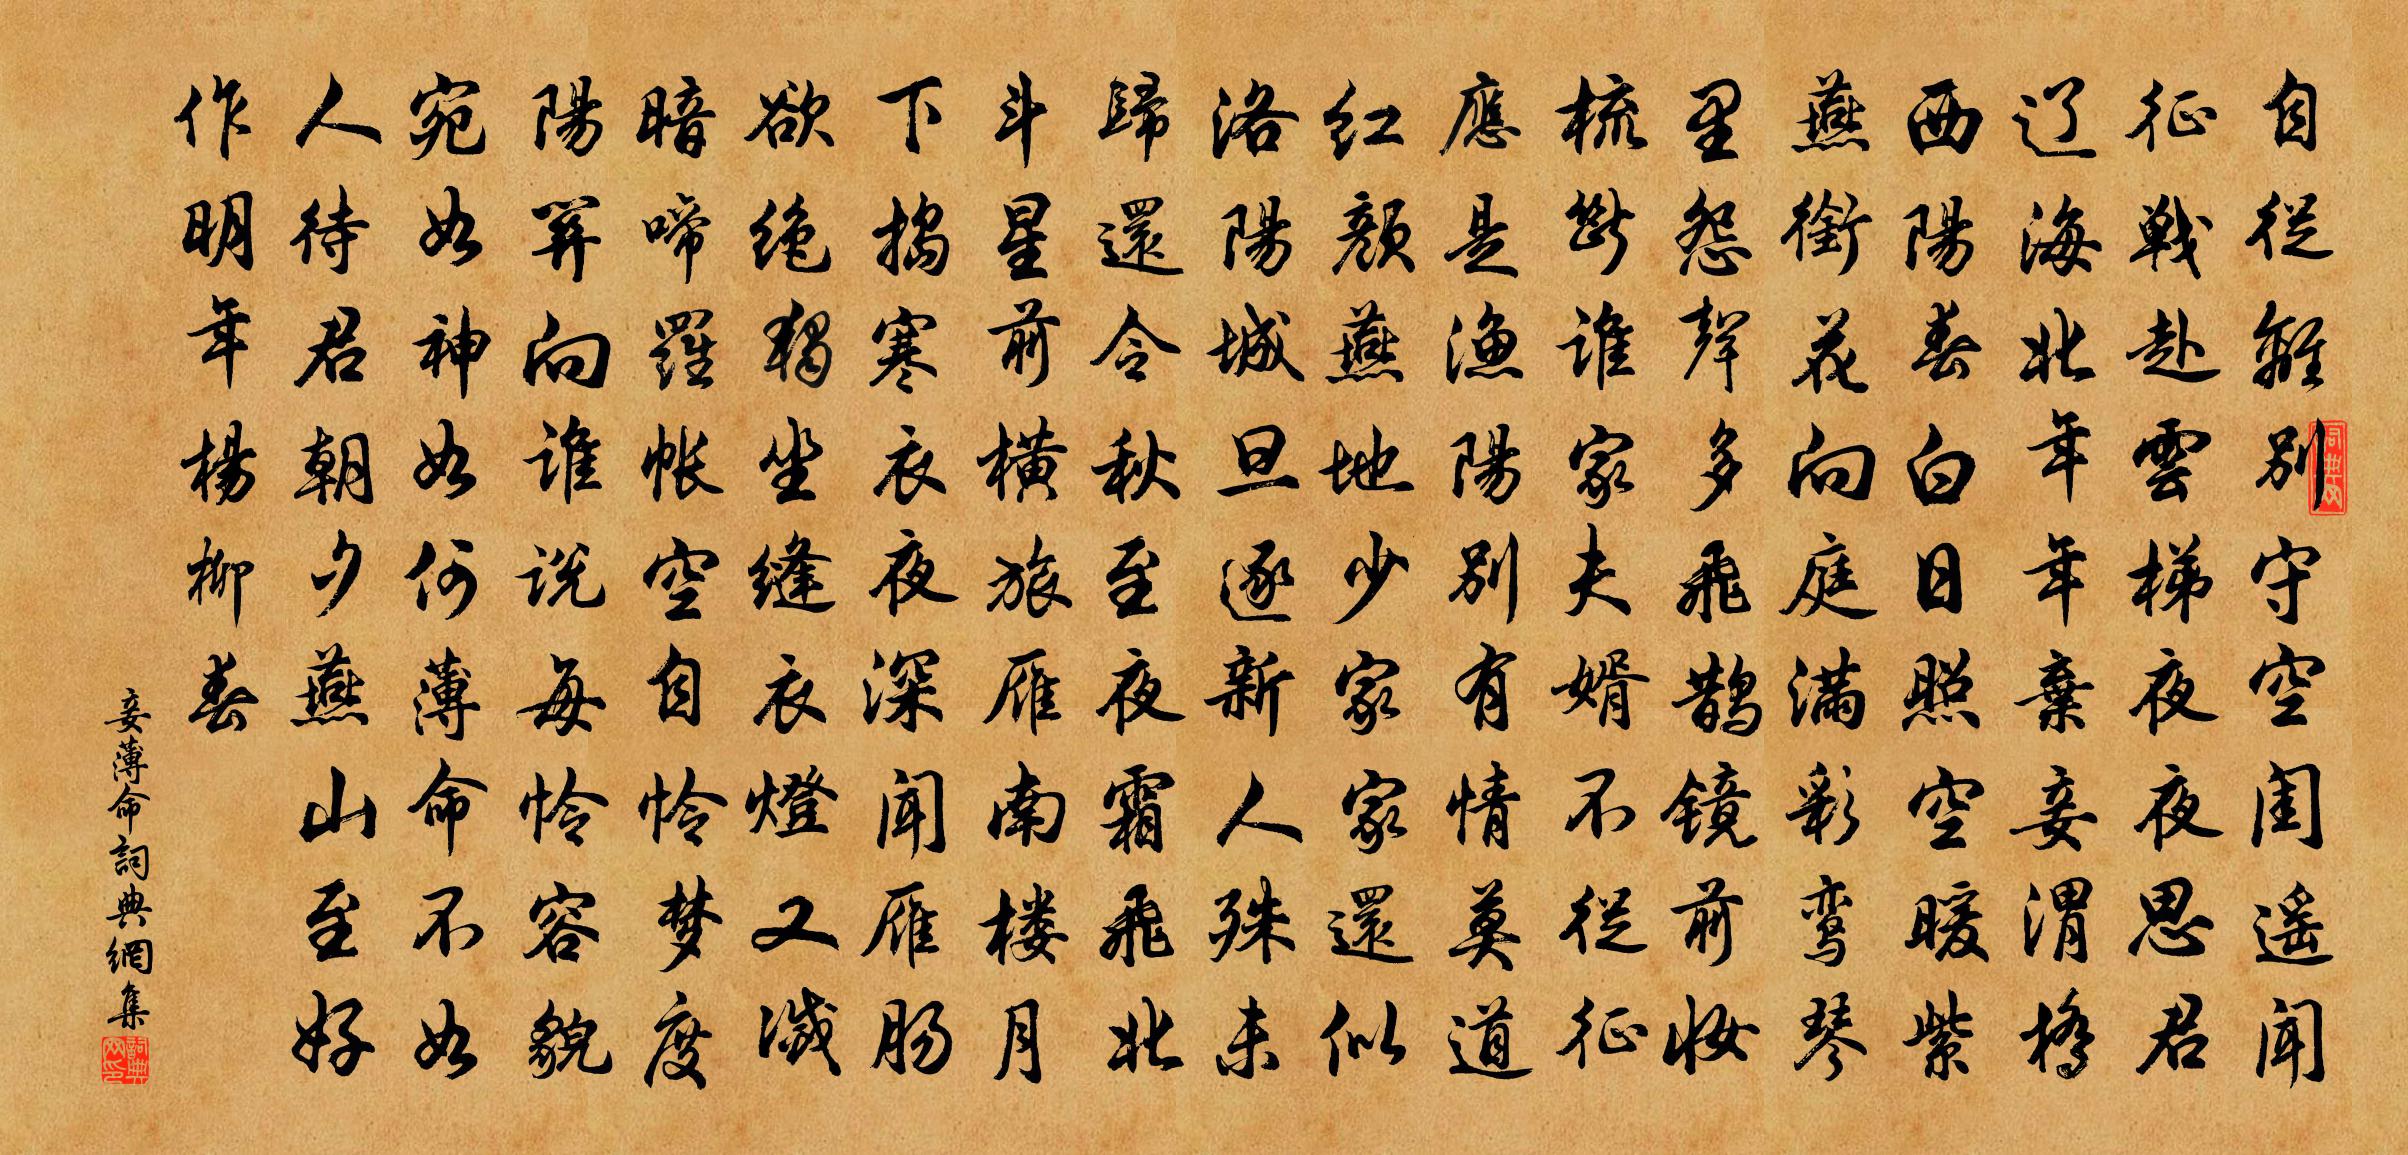 自從離别守空閨遥聞
征戰赴雲梯夜夜思君
辽海北年年棄妾渭橋
西陽春白日照空暖紫
燕銜花向庭满彩鸾琴
里怨聲多飛鹊镜前妝
梳斷谁家夫婿不從征
應是漁陽别有情莫道
红颜燕地少家家還似
洛陽城旦逐新人殊未
歸還令秋至夜霜飛北
斗星前横旅雁南楼月
下搗寒衣夜深聞雁肠
欲絶獨坐缝衣燈又滅
暗啼羅帐空自怜梦度
陽関向谁说每怜容貌
宛如神如何薄命不如
人待君朝夕燕山至好
作明年楊柳春
妾薄命詞典網集
詞典网
詞典网印